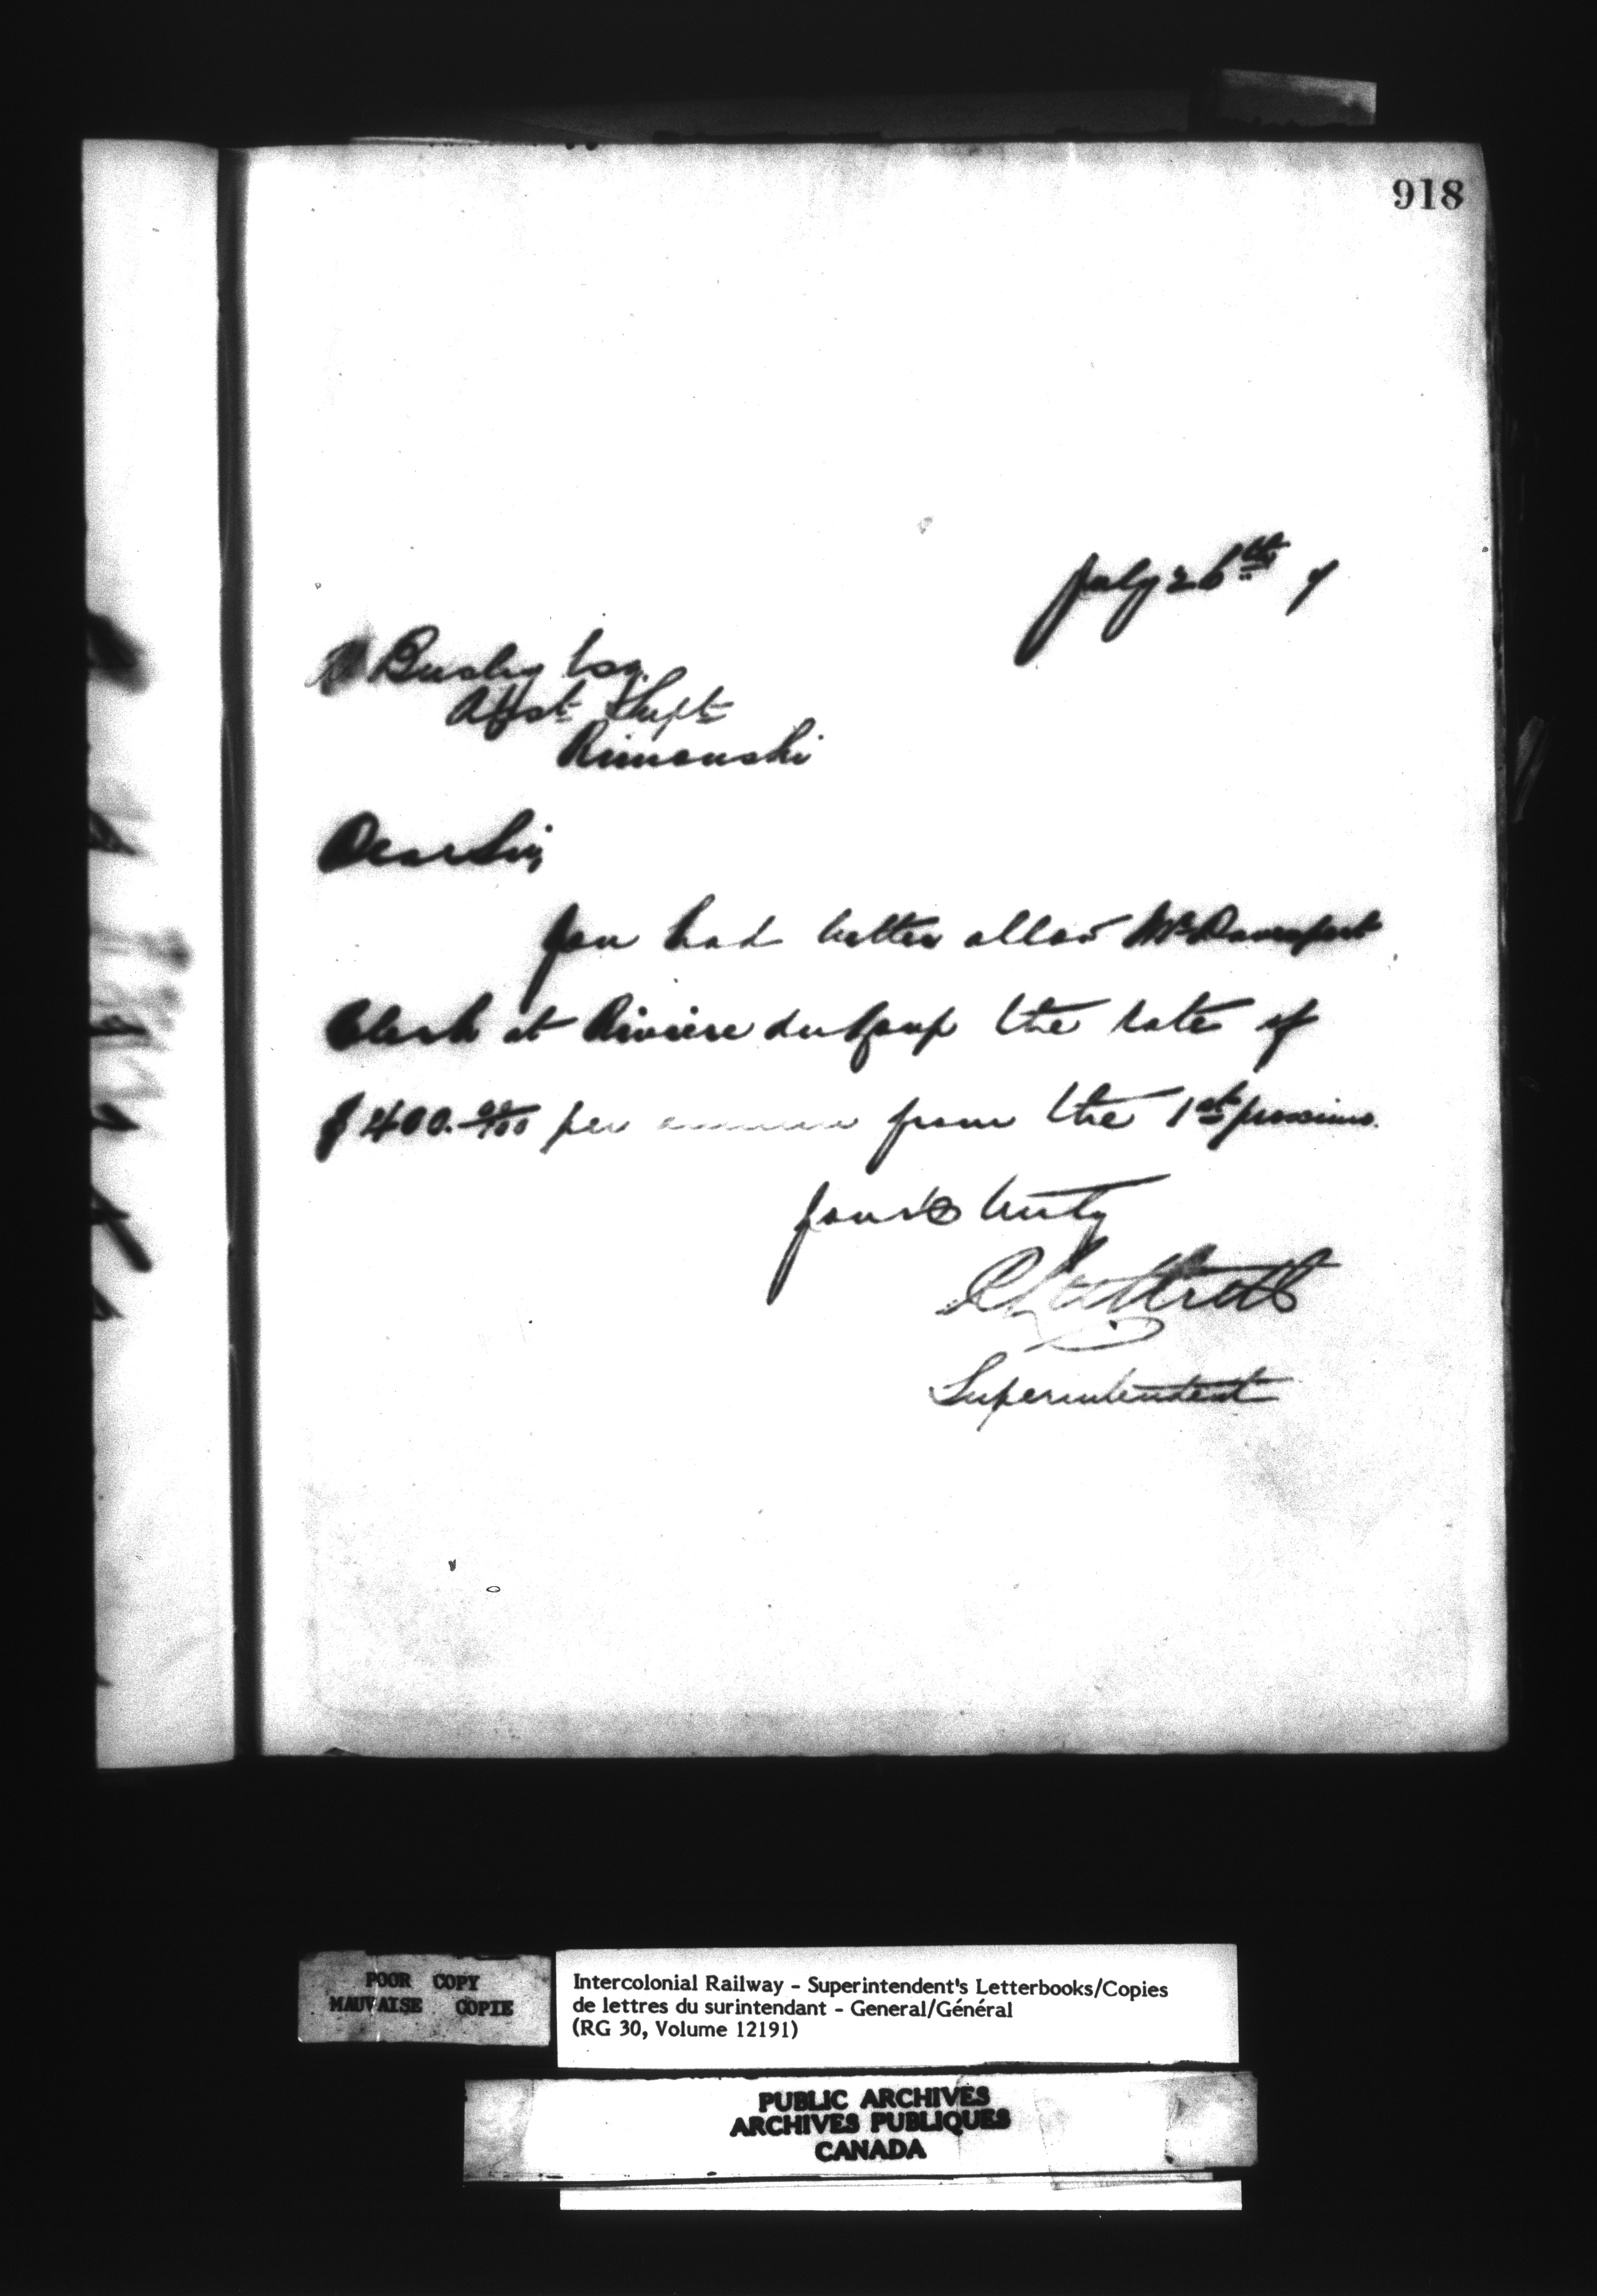 918
July 26th 9
A Busby Esq.
Asst Supt
Rimouski
Dear Sir,
You had better allow Mr Davenport
Clerk at Riviere du Loup the rate of
$400.00/100 per annum from the 1st proximo.
Yours truly
Superintendent
POOR COPY
MAUVAISE COPIE
Intercolonial Railway - Superintendent's Letterbooks/Copies
de lettres du surintendant - General/Général
(RG 30, Volume 12191)
PUBLIC ARCHIVES
ARCHIVES PUBLIQUES
CANADA